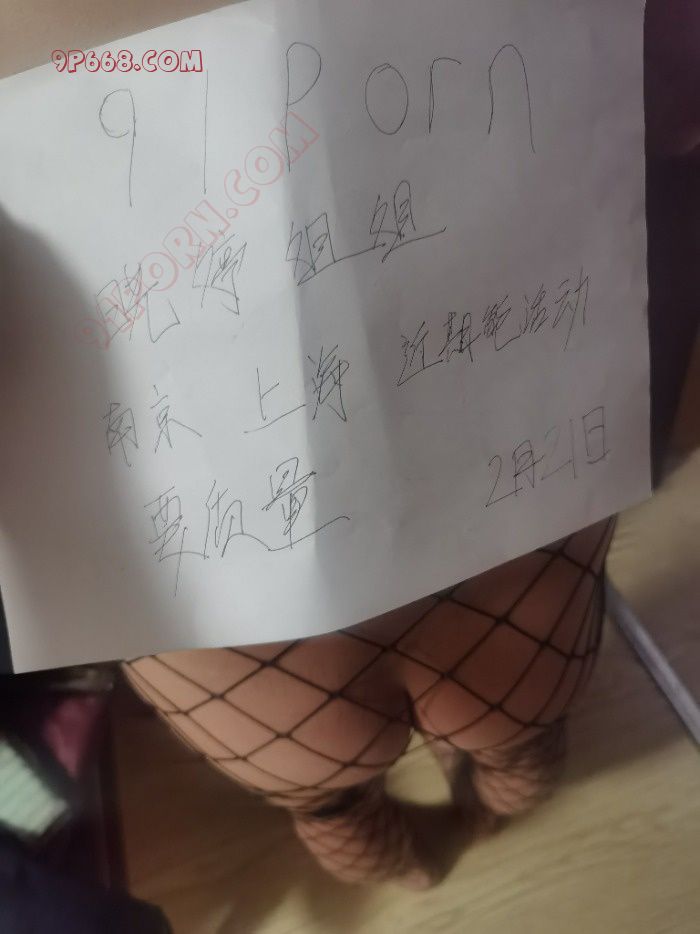 9P668.COM
91Porn
91PORN.COM
晓婷姐姐
南京 上海 近期能活动
要质量 2月21日